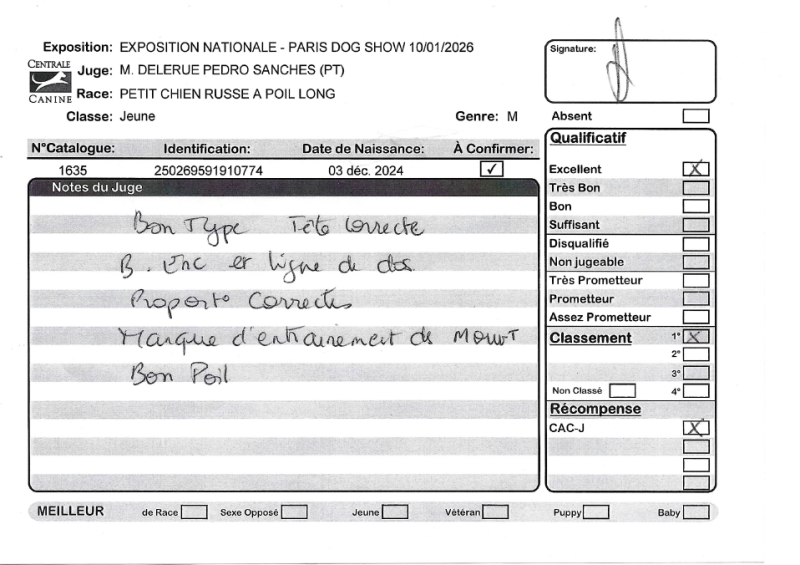 Exposition: EXPOSITION NATIONALE - PARIS DOG SHOW 10/01/2026
Signature:
CENTRALE CANINE
Juge: M. DELERUE PEDRO SANCHES (PT)
Race: PETIT CHIEN RUSSE A POIL LONG
Classe: Jeune Genre: M
Absent
N°Catalogue: Identification: Date de Naissance: À Confirmer:
1635 250269591910774 03 déc. 2024 ✓
Notes du Juge
Bon Type Tête Correcte
B. Enc et ligne de dos
Proport° Correctes
Manque d'entrainement de Mouvt
Bon Poil
Qualificatif
Excellent X
Très Bon
Bon
Suffisant
Disqualifié
Non jugeable
Très Prometteur
Prometteur
Assez Prometteur
Classement 1° X
2°
3°
Non Classé 4°
Récompense
CAC-J X
MEILLEUR de Race Sexe Opposé Jeune Vétéran Puppy Baby